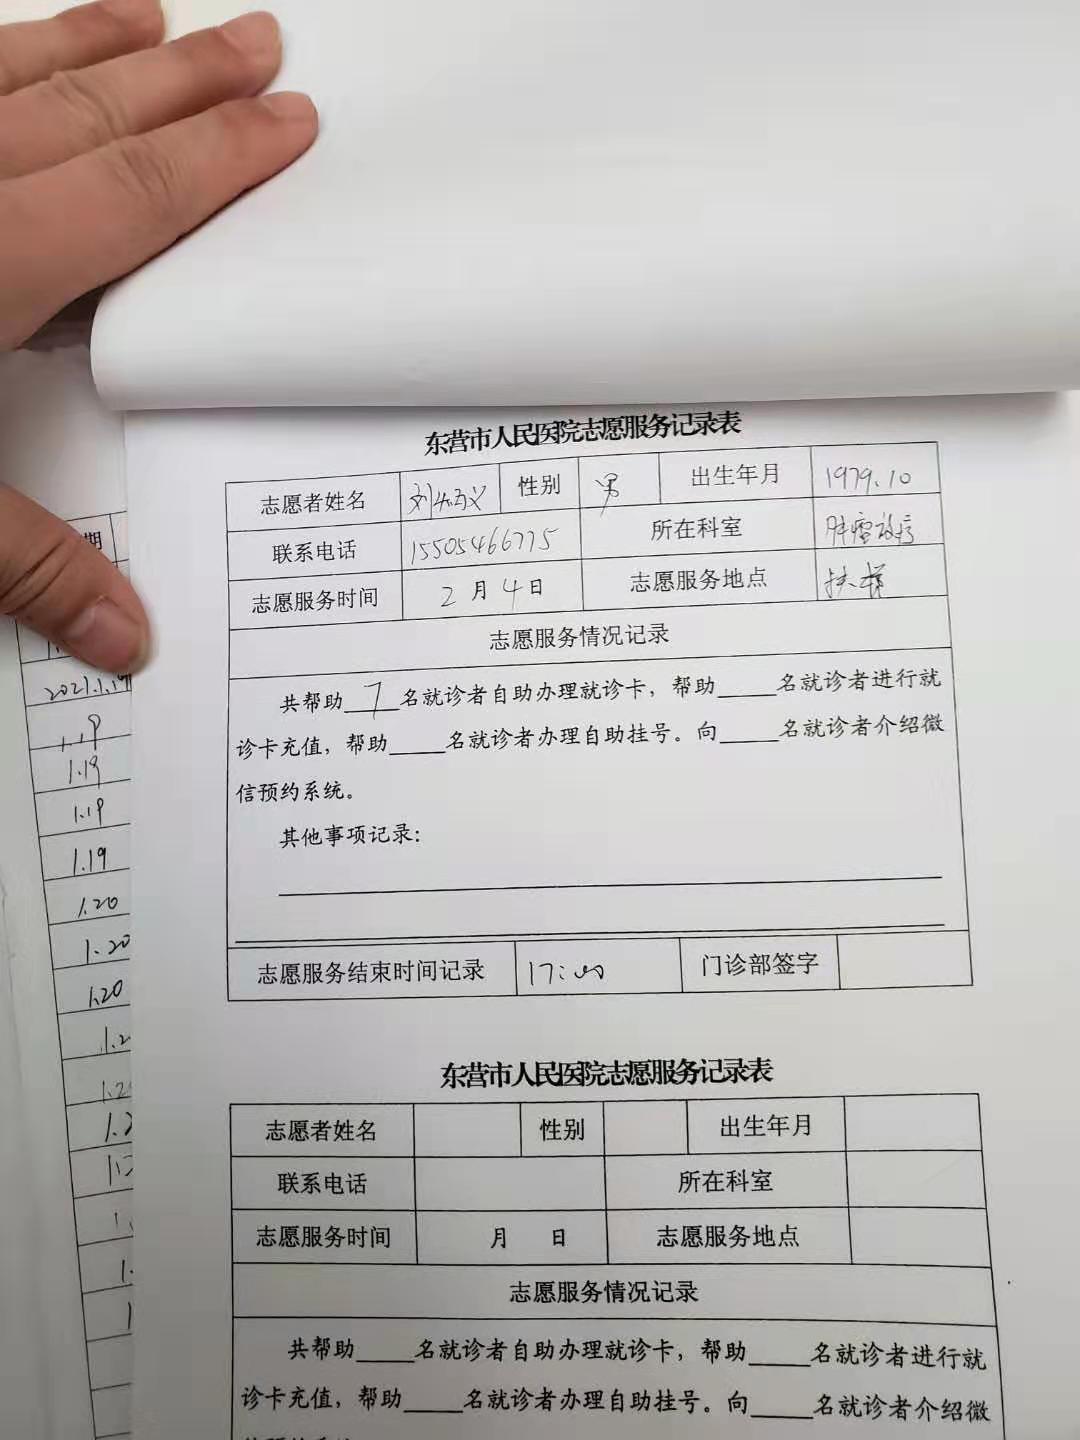 东营市人民医院志愿服务记录表
志愿者姓名 性别 男 出生年月 1979.10
联系电话 15505466775 所在科室 肿瘤放疗
志愿服务时间 2月4日 志愿服务地点 扶梯
志愿服务情况记录
共帮助 7 名就诊者自助办理就诊卡，帮助_____名就诊者进行就
诊卡充值，帮助_____名就诊者办理自助挂号。向_____名就诊者介绍微
信预约系统。
其他事项记录：
志愿服务结束时间记录 17:00 门诊部签字
东营市人民医院志愿服务记录表
志愿者姓名 性别 出生年月
联系电话 所在科室
志愿服务时间 月 日 志愿服务地点
志愿服务情况记录
共帮助_____名就诊者自助办理就诊卡，帮助_____名就诊者进行就
诊卡充值，帮助_____名就诊者办理自助挂号。向_____名就诊者介绍微
期
2021.1.19
1.19
1.19
1.19
1.19
1.20
1.20
1.20